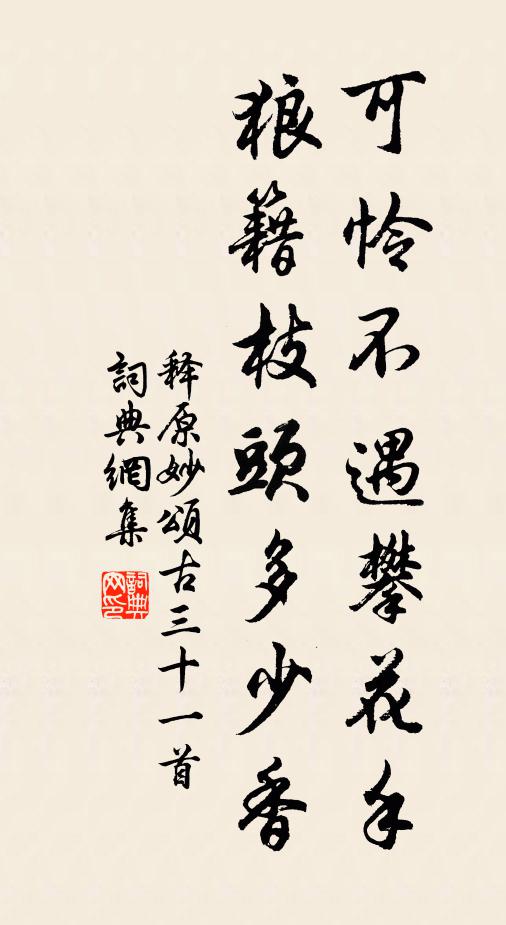 可怜不遇攀花手
狼籍枝頭多少香
释原妙頌古三十一首
詞典網集
詞典网印